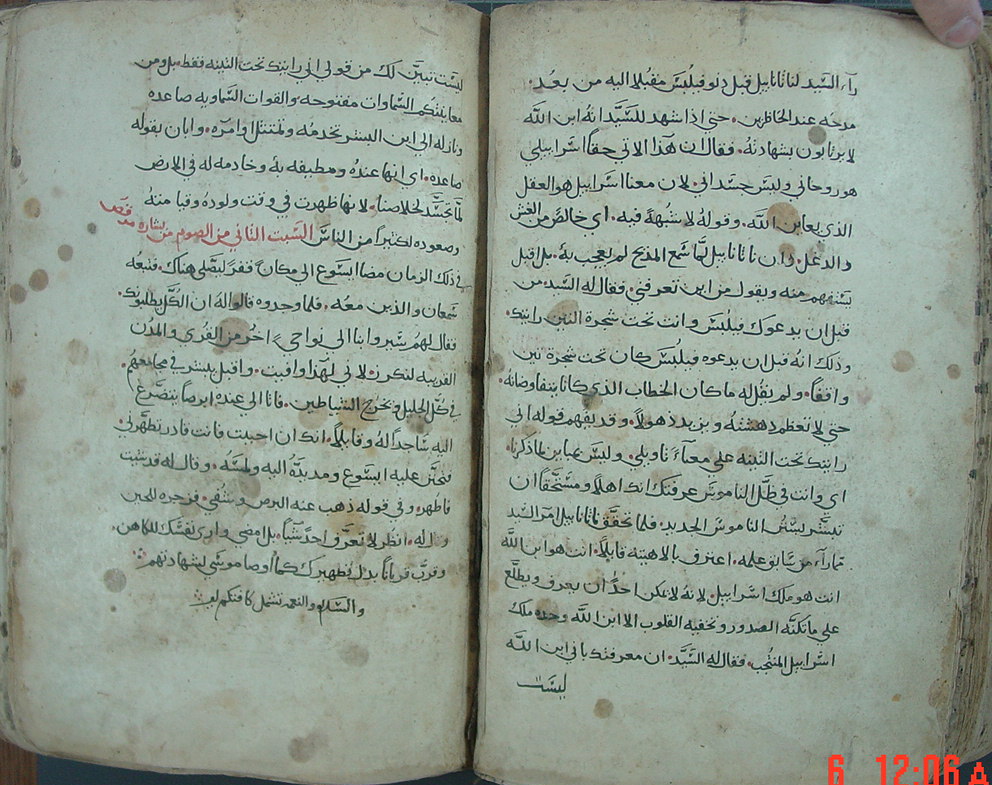 رآء السَّيد لناثانابيل قبل دنو فيلبس مقبلا اليه من بعد.
مدحه عند الحاظرين. حتي اذا شهد للسَّيَّد انهُ ابن اللَّه
لا يرتابون بشهادتهُ. فقال ان هذا الاتي حقاً اسَّرابيلي
هو روحاني وليس جسداني. لان معنا اسرابيل هو العقل
الذي يعاين اللَّه. وقولهُ لا شبهةَ فيه. اي خالصَ من الغش
والدغل. وان ناثانابيل لمَّا سَّمع المديح لم يعجب بهُ. بل اقبل
يستفهم منه ويقول من اين تعرفني. فقال له السَّيد من
قبل ان يدعوك فيلبسَّ وانت تحت شجرة التين رايتك.
وذلك انهُ قبل ان يدعوه فيلبسَّ كان تحت شجرة تين
واقفاً. ولم يقُل له ماكان الخطاب الذي كانا يتفاوضانهُ.
حتي لا تعظم دهشتهُ ويزيد ذهولاً. وقد يفهم قوله اني
رايتك تحت التينه علي معنآءَ تاويلي. وليسَّ بمباين لما ذكرنا.
اي وانت في ظلَّ الناموسَّ عرفتك انك اهلاً ومستحقاً ان
تبشَّر بسنن الناموسَّ الجديد. فلما تحقق ناثانابيل امر السَّيد
مما رآءَ من سَّابق علمه. اعترف بالاهيته قايلاً. انت هو ابن اللَّه
انت هو ملك اسَّرابيل. لانهُ لا يمكن احدٌ ان يعرف ويطَّلع
علي ما تكنّه الصدور وتخفيه القلوب الا ابن اللَّه وحده ملك
اسَّرابيل المنتجب. فقال له السَّيَّد. ان معرفتك باني ابن اللَّه
ليسَّت
ليسَّت تبيَّن لك من قولي اني رايتك تحت التينه فقط. بل ومن
معاينتكم السَّماوات مفتوحه والقوات السَّماويه صاعده
ونازله الي ابن البشر تخدمهُ وتمتثل اوامره. وابان بقوله
صاعده. اي انها عندهُ ومطيفه بهُ وخادمه له في الارض
لمَّا تجسَّد لخلاصنا. لانها ظهرت في وقت ولودهُ وقيامتهُ
وصعوده لكثيراً من الناسَّ السَّبت الثاني من الصوم من بشارة مرقص
في ذلك الزمان مضا ايسَّوع الي مكانٍ قفرٍ ليصلي هناك. فتبعه
سَّمعان والذين معُه. فلما وجدوه قالوا له ان الكُلَّ يطلبونك.
فقال لهمُ سَّيروا بنا الي نواحيٍ اخُر من القُري والمدُن
القريبه لنكرز. لاني لهذا وافيت. واقبل يبشر في مجامعهم.
في كُلَّ الجليل ويخرج الشياطين. فاتا الي عندهُ ابرصاً يتضرَّع
اليه سَّاجداً لهُ وقايلاً. انك ان احببت فانت قادر تطهَّرني
فتحنَّن عليه ايسَّوع ومد يدَّهُ اليه ولمسَّه. وقال له قد شيت
فاطهر. وفي قوله ذهب عنه البرص وشُفي. فزجره للحين
وقال له. انظر لا تعرَّف احدٍ شياً. بل امضي واري نفسَّك للكاهن.
وقرَّب قرباناً بدل تطهيرك كماُ اوصا موسَّي لشهادتهم
والسَّلام والنعمه تشمل كافتكم
6 12:06 A